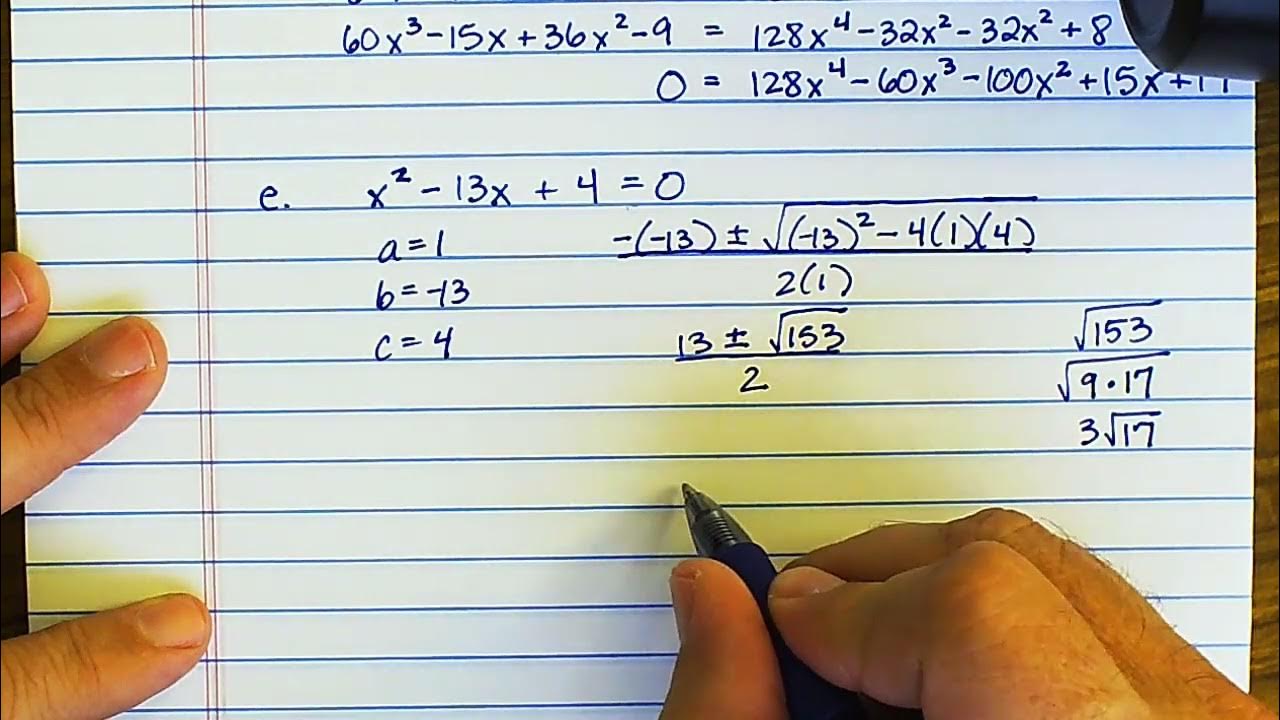 60x³ - 15x + 36x² - 9 = 128x⁴ - 32x² - 32x² + 8
0 = 128x⁴ - 60x³ - 100x² + 15x +
e. x² - 13x + 4 = 0
a = 1
-(-13) ± √(-13)² - 4(1)(4)
2(1)
b = -13
c = 4
13 ± √153
2
√153
√9·17
3√17